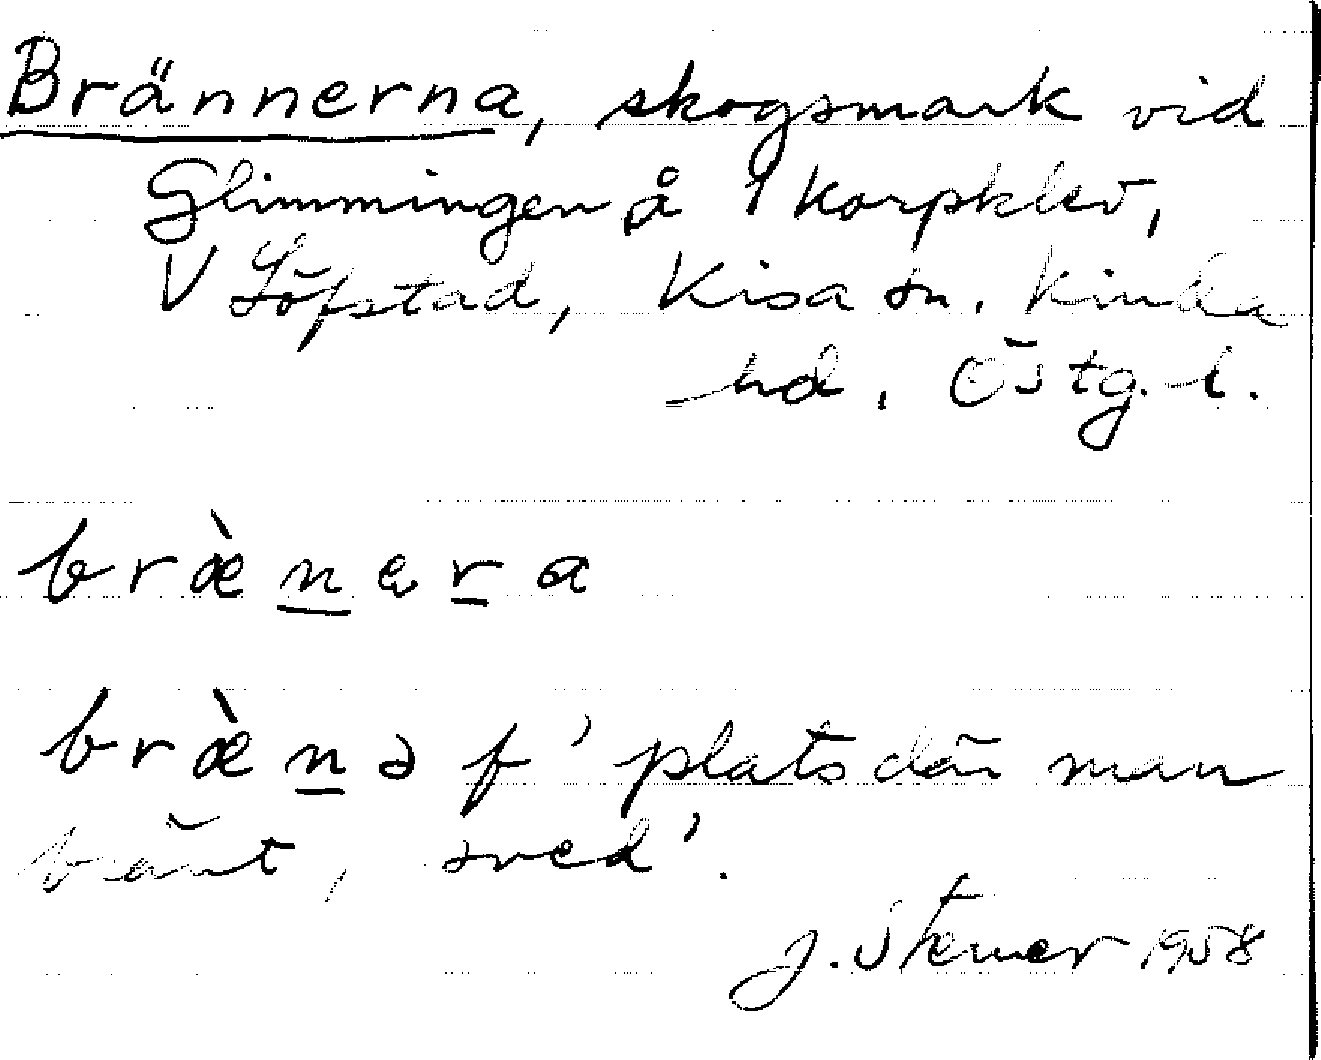 Brännerna, skogsmark vid
Glimmingen å 1 Korpklev,
V Löfstad, Kisa sn. Kinda
hd, Östg. l.
bræ̀nera
bræ̀nə f 'plats där man
bränt, sved'.
J. 1958